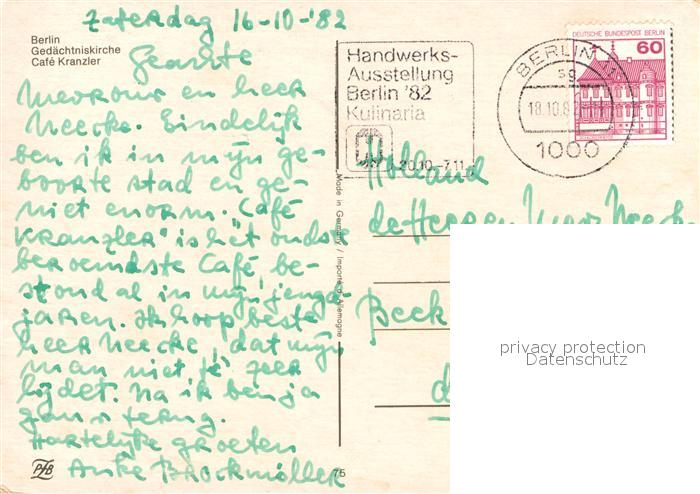 Zaterdag 16-10-'82
Berlin
Gedächtniskirche
Café Kranzler
Geachte
Mevrouw en heer
Neecke. Eindelijk
ben ik in mijn ge-
boorte stad en ge-
niet enorm. "Café
Kranzler" is het oudste
beroemdste Café be-
stond al in mijn jeugd-
jaren. Ik hoop beste
heer Neecke, dat mijn
man niet te zeer
lijdt. Na ik ben ja
gauw terug.
Hartelijke groeten
Anke Brockmöller
PfB
75
Made in Germany / Importé d'Allemagne
Handwerks-
Ausstellung
Berlin '82
Kulinaria
20.10.-7.11.
BERLIN 11
sg
18.10.82
1000
DEUTSCHE BUNDESPOST BERLIN
60
Holland
de Herren
Beek
d
privacy protection
Datenschutz